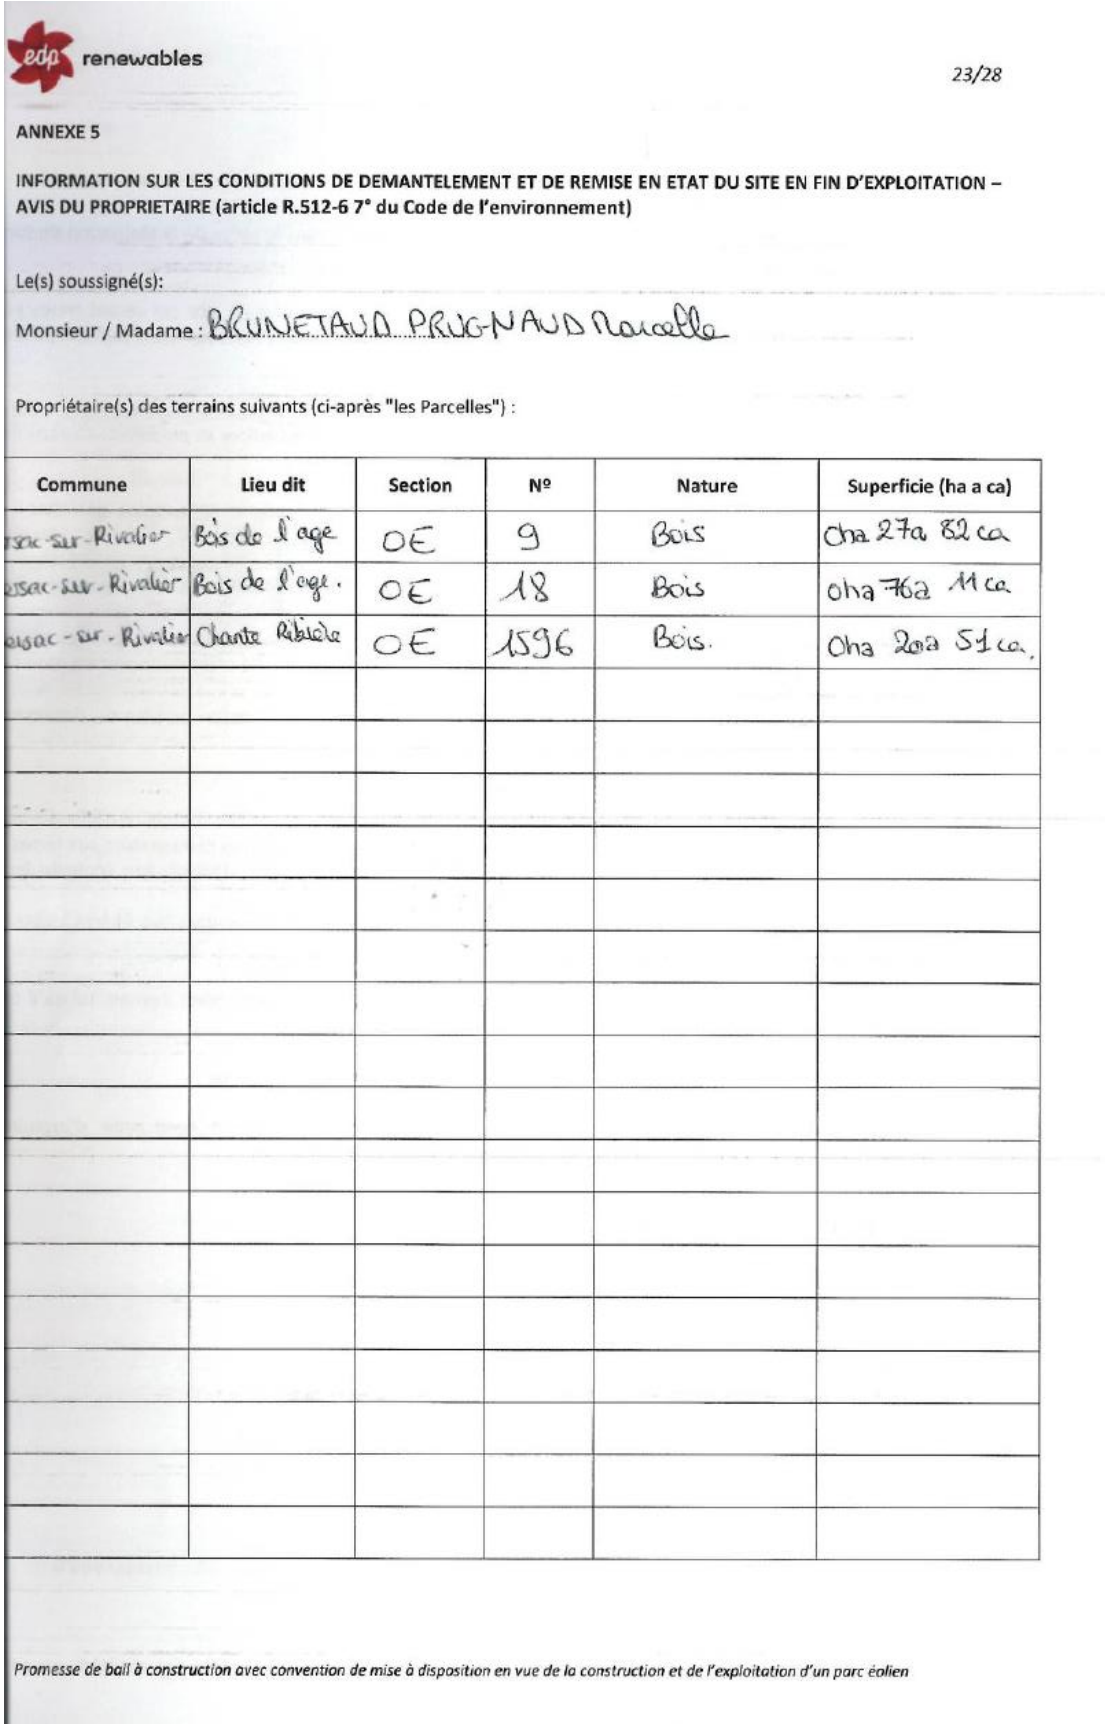 edp renewables
23/28
ANNEXE 5
INFORMATION SUR LES CONDITIONS DE DEMANTELEMENT ET DE REMISE EN ETAT DU SITE EN FIN D'EXPLOITATION –
AVIS DU PROPRIETAIRE (article R.512-6 7° du Code de l'environnement)
Le(s) soussigné(s):
Monsieur / Madame : BRUNETAUD PRUGNAUD Marcelle
Propriétaire(s) des terrains suivants (ci-après "les Parcelles") :
Commune Lieu dit Section Nº Nature Superficie (ha a ca)
ssac-sur-Rivalier Bois de l'age OE 9 Bois Oha 27a 82 ca
ssac-sur-Rivalier Bois de l'age. OE 18 Bois Oha 76a 11 ca
ssac-sur-Rivalier Chante Ribière OE 1596 Bois. Oha 20a 51 ca.
Promesse de bail à construction avec convention de mise à disposition en vue de la construction et de l'exploitation d'un parc éolien